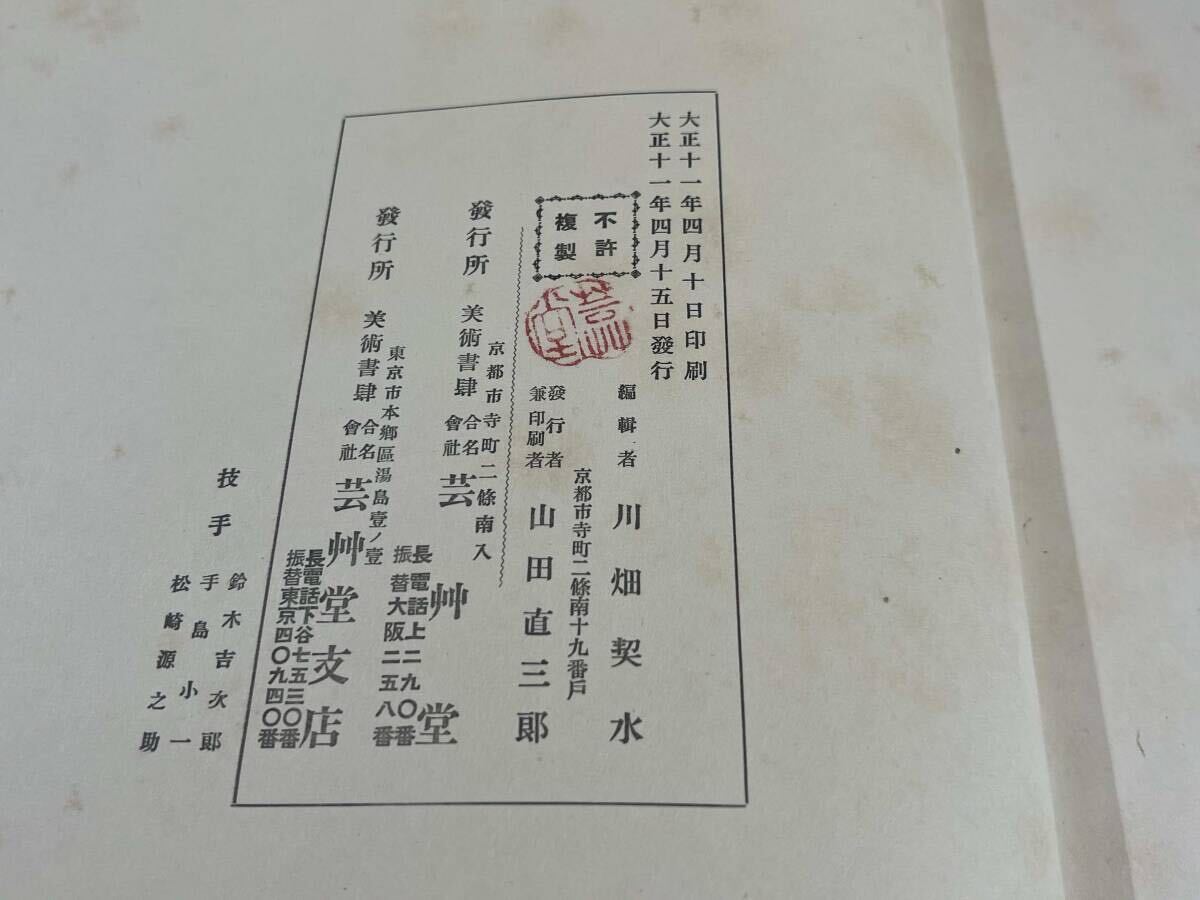 大正十一年四月十日印刷
大正十一年四月十五日發行
不許
複製
編輯者 川畑契水
京都市寺町二條南十九番戶
發行者
兼印刷者 山田直三郎
京都市寺町二條南入
發行所 美術書肆 合名會社 芸艸堂
長電話上二九〇番
振替大阪二五八番
東京市本鄉區湯島壹ノ壹
發行所 美術書肆 合名會社 芸艸堂支店
長電話下谷七五三〇番
振替東京四〇九四〇番
技手
鈴木吉次郎
手島小一
松崎源之助